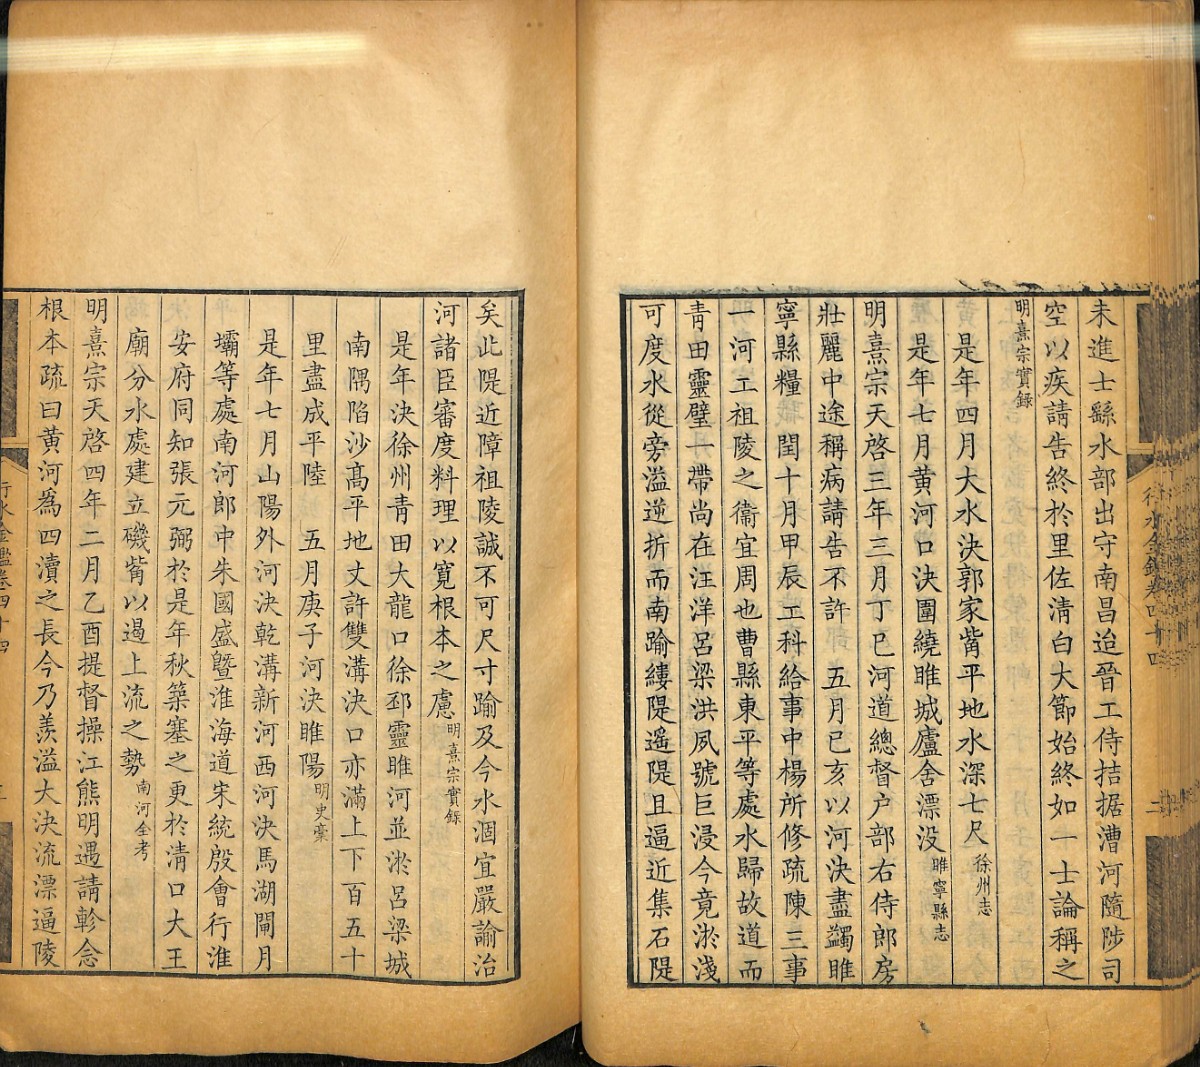 未進士繇水部出守南昌迨晉工侍拮据漕河隨陟司
空以疾請告終於里佐清白大節始終如一士論稱之
明熹宗實錄
是年四月大水決郭家觜平地水深七尺徐州志
是年七月黄河口決圍繞睢城廬舍漂没睢寧縣志
明熹宗天啓三年三月丁巳河道總督户部右侍郎房
壯麗中途稱病請告不許 五月己亥以河決盡蠲睢
寧縣糧 閏十月甲辰工科給事中楊所修疏陳三事
一河工祖陵之衞宜周也曹縣東平等處水歸故道而
青田靈璧一帶尚在汪洋吕梁洪夙號巨浸今竟淤淺
可度水從旁溢逆折而南踰縷隄遥隄且逼近集石隄
行水金鑑卷四十四
二
矣此隄近障祖陵誠不可尺寸踰及今水涸宜嚴諭治
河諸臣審度料理以寛根本之慮明熹宗實錄
是年決徐州青田大龍口徐邳靈睢河並淤吕梁城
南隅陷沙髙平地丈許雙溝決口亦滿上下百五十
里盡成平陸 五月庚子河決睢陽明史稾
是年七月山陽外河決乾溝新河西河決馬湖閘月
壩等處南河郎中朱國盛暨淮海道宋統殷會行淮
安府同知張元弼於是年秋築塞之更於清口大王
廟分水處建立磯觜以遏上流之勢南河全考
明熹宗天啓四年二月乙酉提督操江熊明遇請軫念
根本疏曰黄河為四瀆之長今乃羨溢大決流漂逼陵
行水金鑑卷四十四